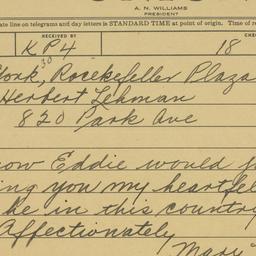 A. N. WILLIAMS
PRESIDENT
ate line on telegrams and day letters is STANDARD TIME at point of origin. Time of re
RECEIVED BY
CHE
KP4
18
30
York, Rocekefeller Plaza
Herbert Lehman
820 Park Ave
now Eddie would
ing you my heartfel
he in this country
Affectionately
Mary